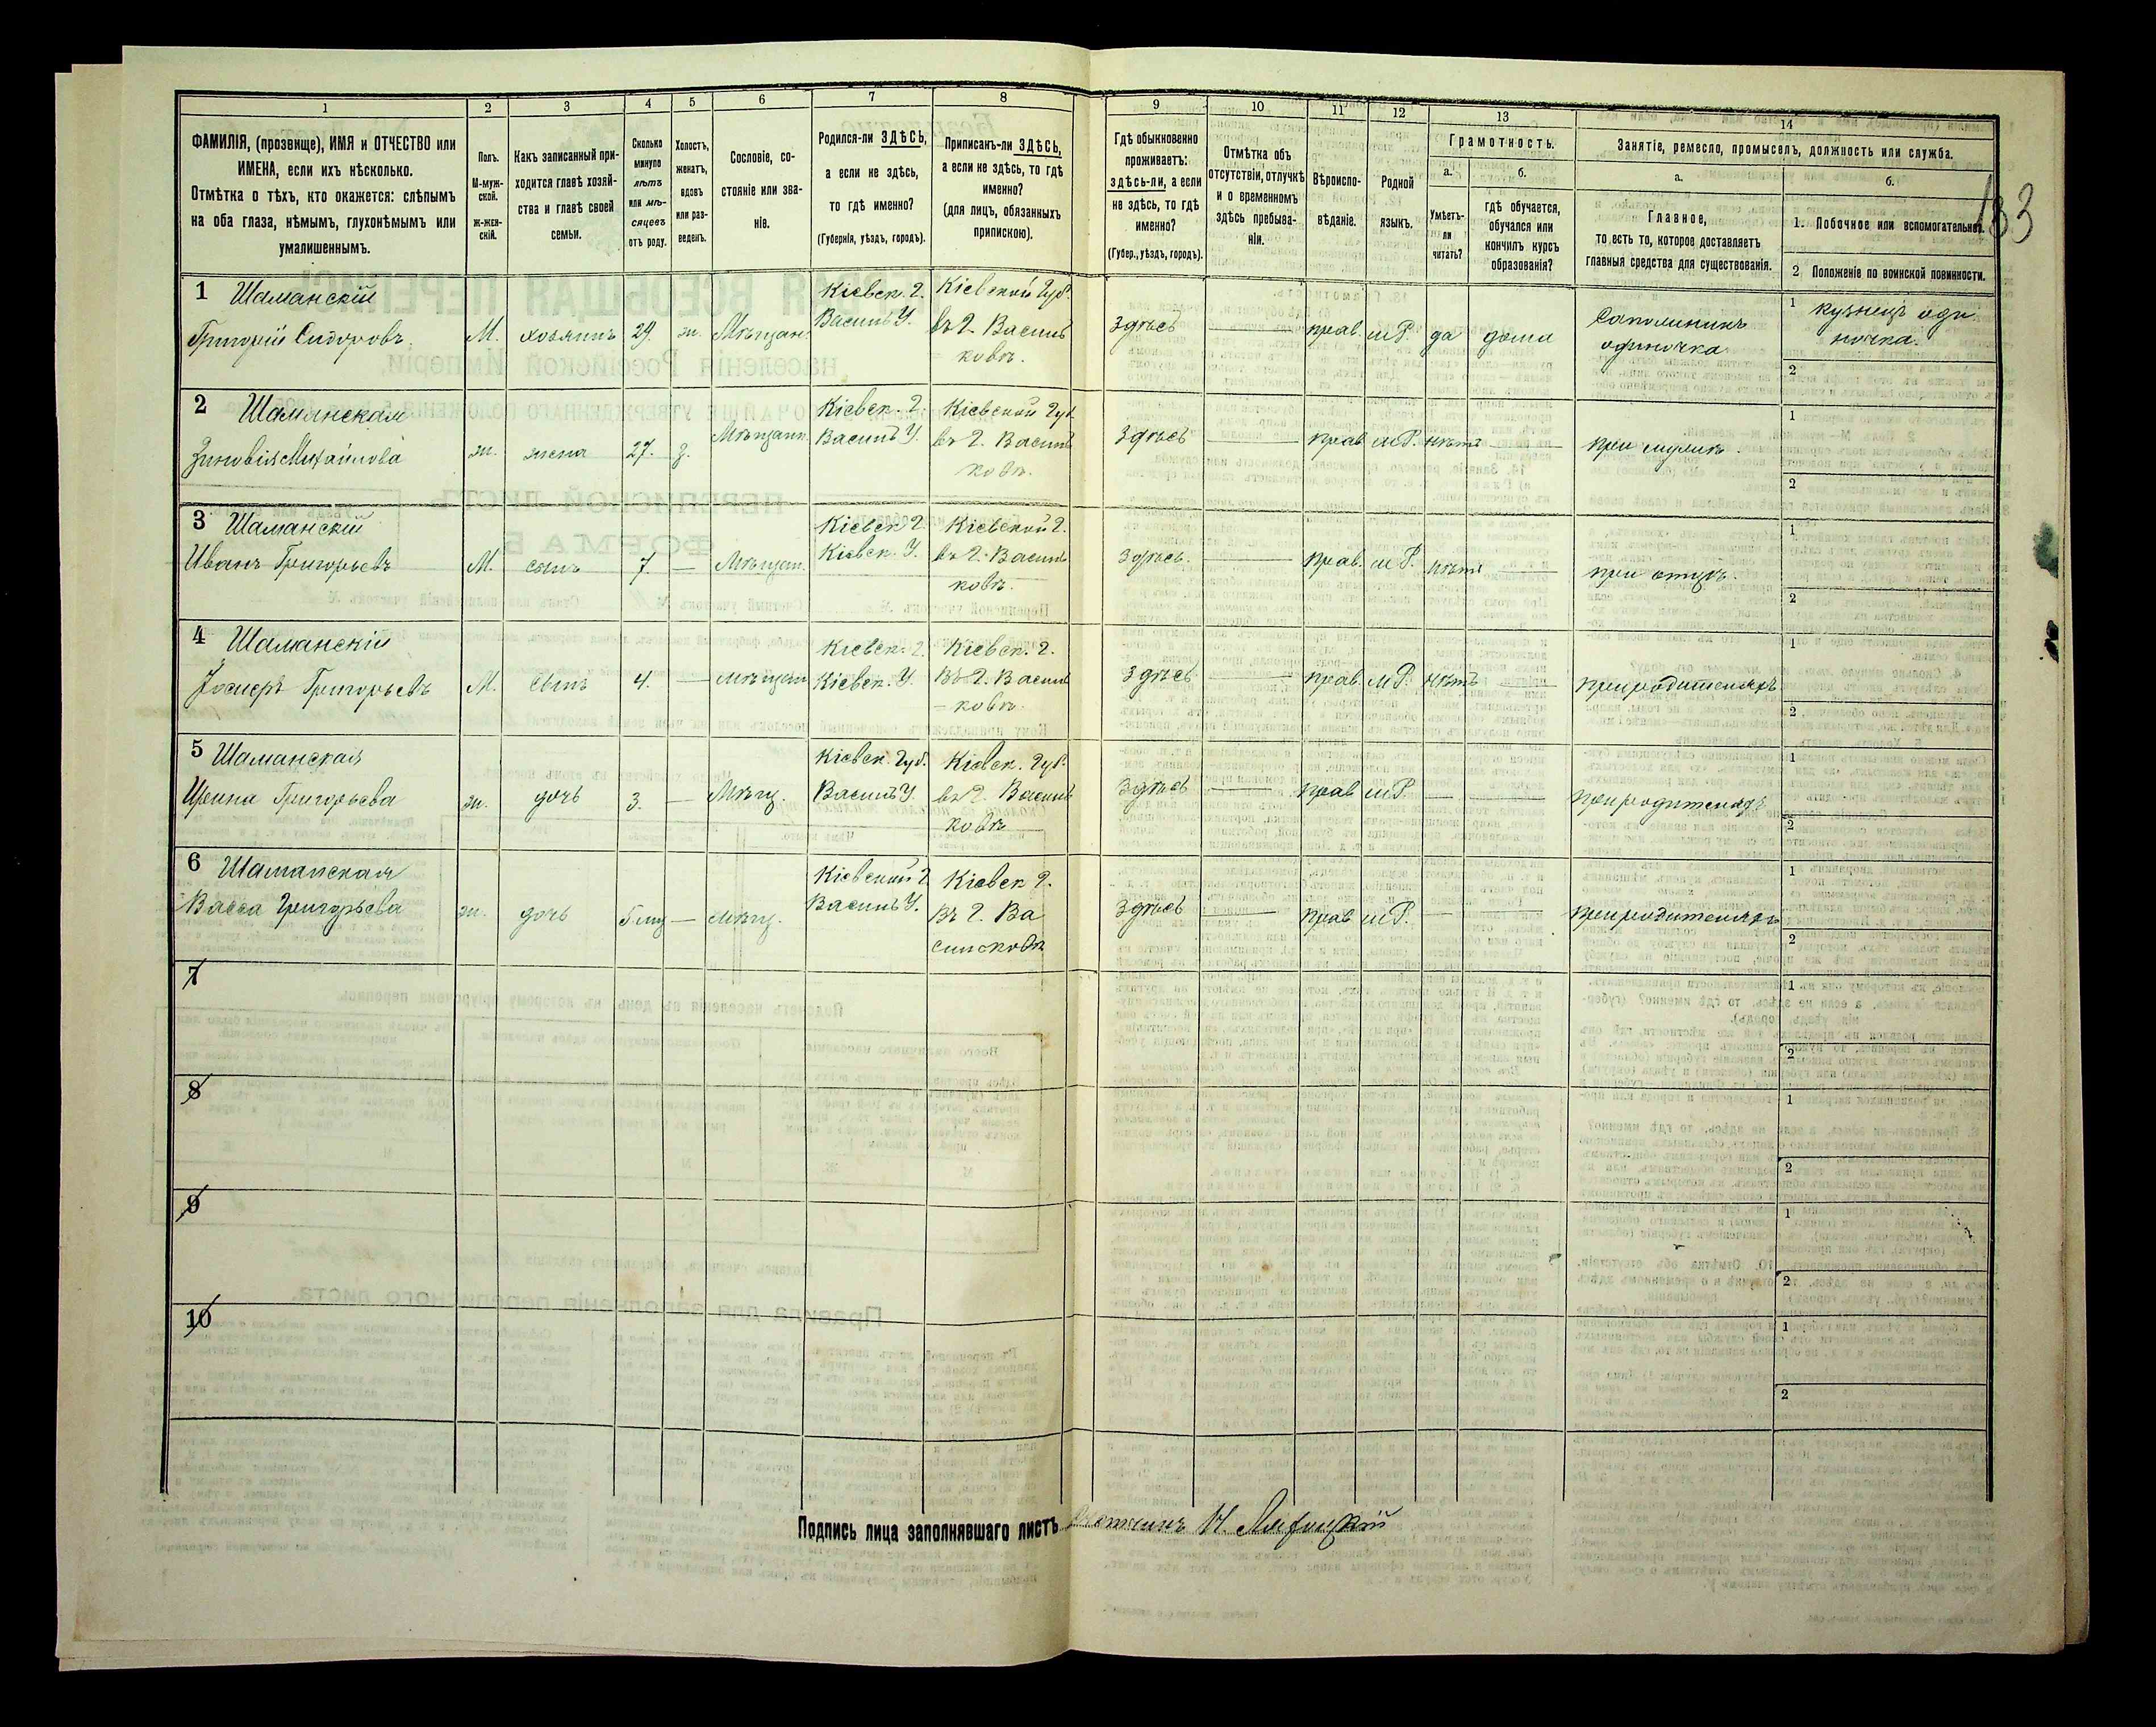 183
1
2
3
4
5
6
7
8
9
10
11
12
13
14
ФАМИЛІЯ, (прозвище), ИМЯ и ОТЧЕСТВО или
ИМЕНА, если ихъ нѣсколько.
Отмѣтка о тѣхъ, кто окажется: слѣпымъ
на оба глаза, нѣмымъ, глухонѣмымъ или
умалишеннымъ.
Полъ.
М-муж-
ской.
Ж-жен-
скій.
Какъ записанный при-
ходится главѣ хозяй-
ства и главѣ своей
семьи.
Сколько
минуло
лѣтъ
или мѣ-
сяцевъ
отъ роду.
Холостъ,
женатъ,
вдовъ
или раз-
веденъ.
Сословіе, со-
стояніе или зва-
ніе.
Родился-ли ЗДѢСЬ,
а если не здѣсь,
то гдѣ именно?
(Губернія, уѣздъ, городъ).
Приписанъ-ли ЗДѢСЬ,
а если не здѣсь, то гдѣ
именно?
(для лицъ, обязанныхъ
припискою).
Гдѣ обыкновенно
проживаетъ:
здѣсь-ли, а если
не здѣсь, то гдѣ
именно?
(Губер., уѣздъ, городъ).
Отмѣтка объ
отсутствіи, отлучкѣ
и о временномъ
здѣсь пребыва-
ніи.
Вѣроиспо-
вѣданіе.
Родной
языкъ.
Грамотность.
а.
Умѣетъ-
ли
читать?
б.
гдѣ обучается,
обучался или
кончилъ курсъ
образованія?
Занятіе, ремесло, промыселъ, должность или служба.
а.
Главное,
то есть то, которое доставляетъ
главныя средства для существованія.
б.
1. Побочное или вспомогательное.
2 Положеніе по воинской повинности.
1 Шаманскій
Григорій Сидоровъ
М.
хозяинъ
29.
ж.
Мѣщан.
Кіевск. г.
Василь У.
Кіевской Губ.
въ г. Василь
ковѣ.
здѣсь
прав.
мР.
да
дома
Сапожникъ
одиночка
1 кузнецъ оди
ночка.
2
2 Шаманская
Зиновія Михайлова
ж.
жена
27.
з.
Мѣщанк.
Кіевск. г.
Василь У.
Кіевской Губ
въ г. Василь
ковѣ.
здѣсь
прав
мР.
нѣтъ
при мужѣ.
1
2
3 Шаманскій
Иванъ Григорьевъ
М.
сынъ
7.
Мѣщан.
Кіевск г.
Кіевск. У.
Кіевской г.
въ г. Василь
ковѣ.
здѣсь.
прав.
мР.
нѣтъ
при отцѣ.
1
2
4 Шаманскій
Іосифъ Григорьевъ
М.
сынъ
4.
мѣщан
Кіевск. г.
Кіевск. У.
Кіевск. г.
Въ г. Василь
ковѣ.
здѣсь
прав.
мР.
нѣтъ
при родителяхъ
1
2
5 Шаманская
Ирина Григорьева
ж.
дочь
3.
Мѣщ.
Кіевск. Губ.
Василь У.
Кіевск. Губ.
въ г. Василь
ковѣ
здѣсь
прав
мР.
при родителяхъ
1
2
6 Шаманская
Васса Григорьева
ж.
дочь
5 мц
мѣщ.
Кіевской г
Василь У.
Кіевск г.
въ г. Ва
сильковѣ
здѣсь
прав
мР.
при родителяхъ
1
2
7
1
2
8
1
2
9
1
2
10
1
2
Подпись лица заполнявшаго листъ Счетчикъ